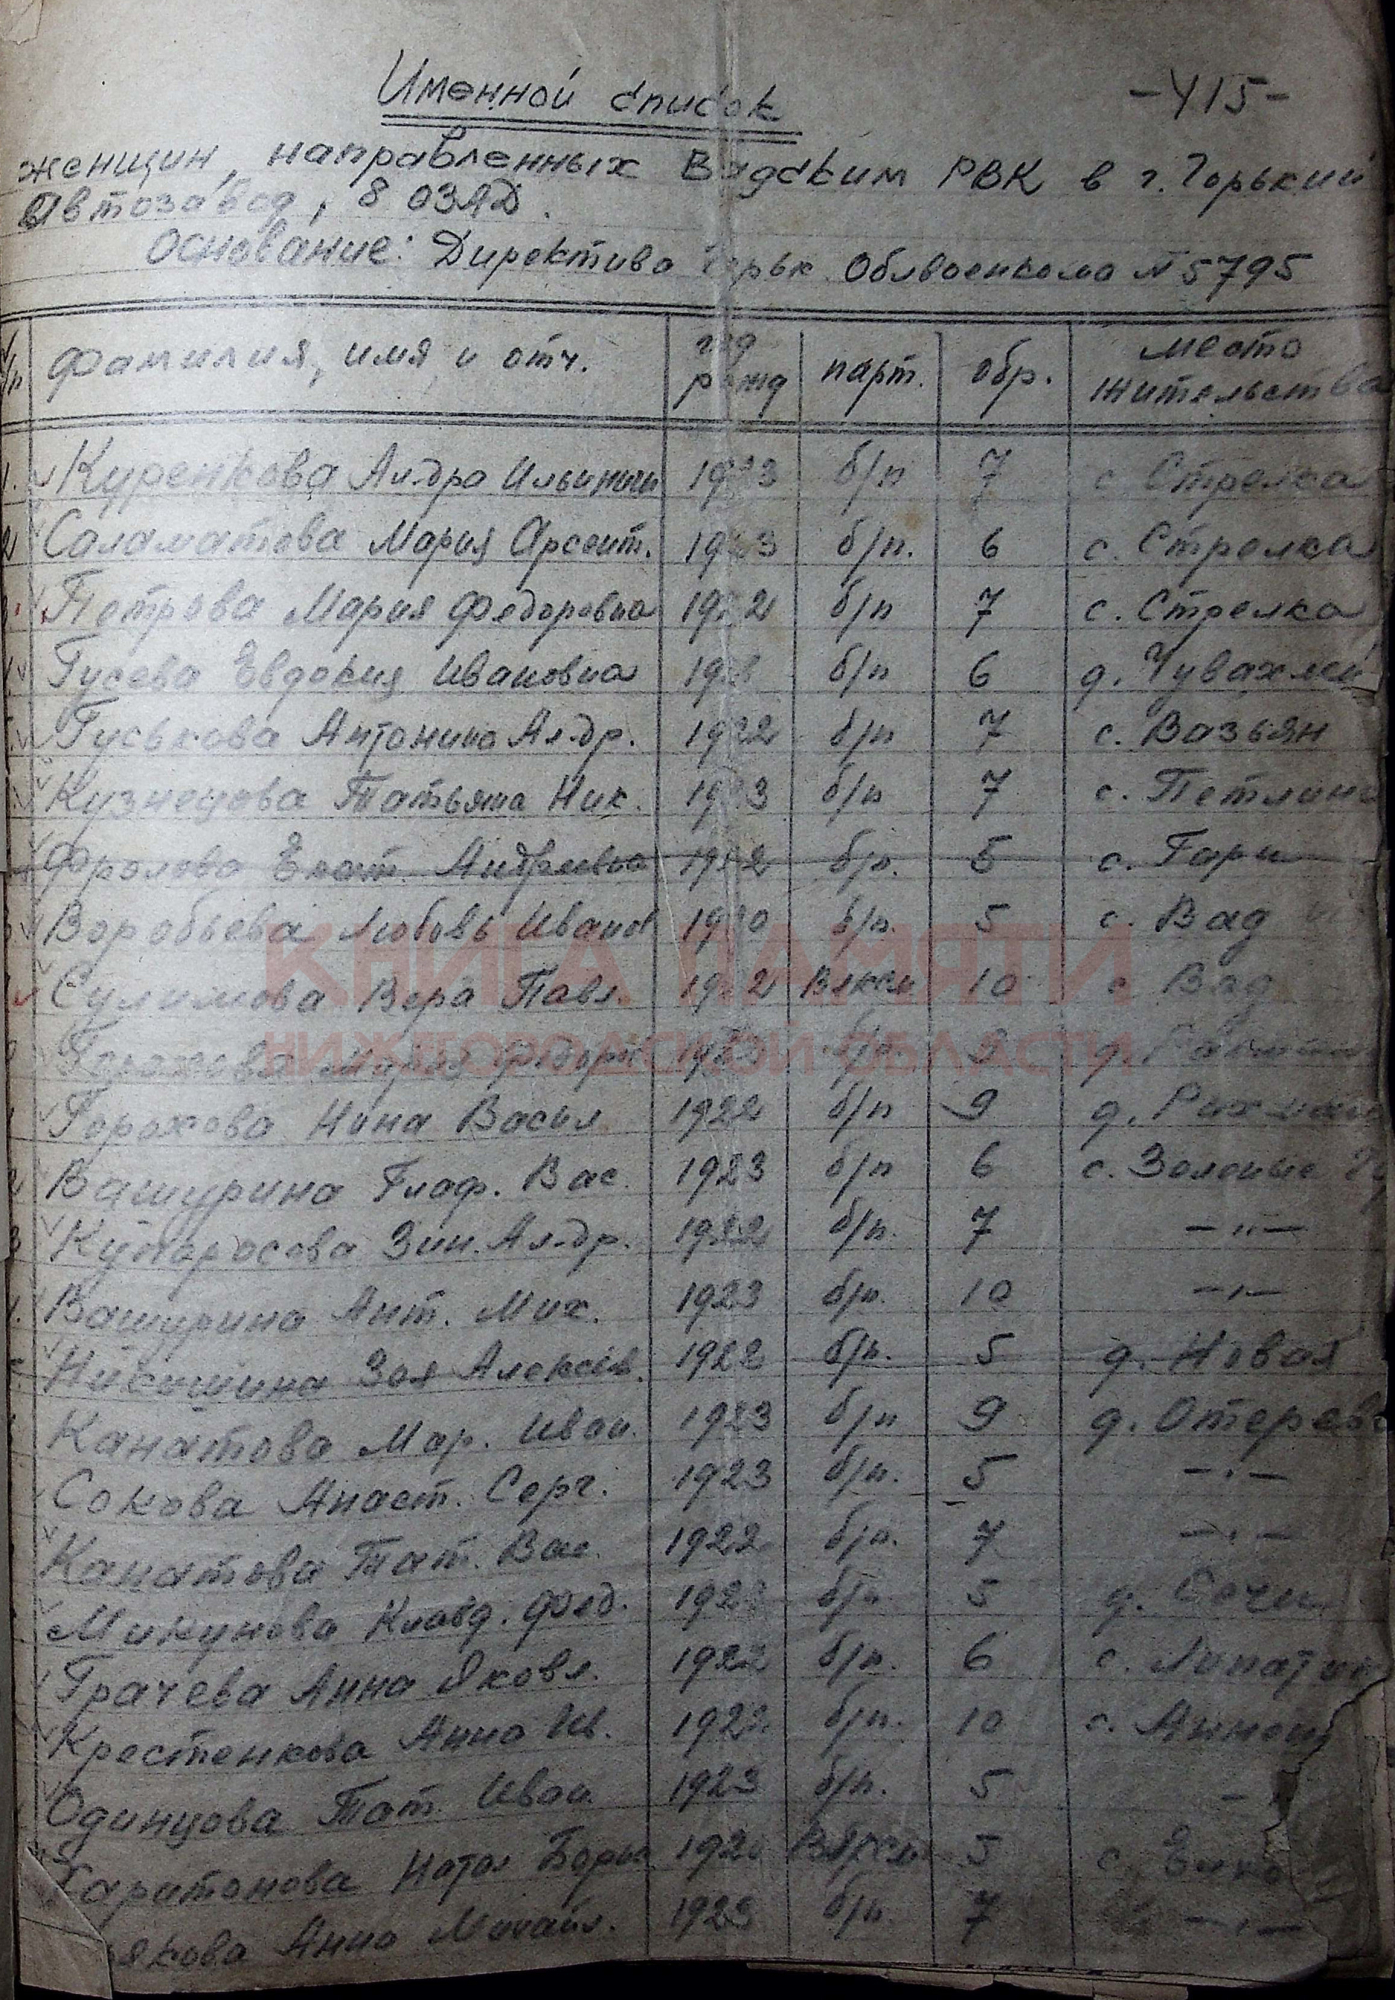 Именной список -415-
женщин, направленных Вадским РВК в г. Горький
Автозавод, 8 ОЗАД.
Основание: Директива Горьк. Облвоенкома N 5795
фамилия, имя и отч. год рожд парт. обр. место жительства
1. Куренкова Ал-дра Ильинич 1923 б/п 7 с. Стрелка
2 Саламатова Мария Арсент. 1923 б/п. 6 с. Стрелка
Петрова Мария Федоровна 1922 б/п 7 с. Стрелка
Гусева Евдокия Ивановна б/п 6 д. Чувахлей
Гуськова Антонина Ал-др. 1922 б/п 7 с. Вазьян
Кузнецова Татьяна Ник. 1923 б/п 7 с. Петлино
Фролова Екат. Андреевна 1922 б/п. 5 с. Гари
Воробьева Любовь Иванов 1920 б/п. 5 с. Вад
Сулимова Вера Павл. 1922 ВЛКСМ 10 с Вад
Горохова Мария Федор 1922 б/п. 9 д.
Горохова Нина Васил 1922 б/п 9 д.
Вашурина Глаф. Вас. 1923 б/п 6 с. Зеленые
Кипарисова Зин. Ал-др. 1922 б/п. 7 -"-
Вашурина Ант. Мих. 1923 б/п. 10 -"-
Никишина Зоя Алексеев. 1922 б/п. 5 д. Новая
Канатова Мар. Иван. 1923 б/п 9 д. Отерево
Сокова Анаст. Серг. 1923 б/п. 5 -"-
Канатова Тат. Вас. 1922 б/п. 7 -"-
Микунова Клавд. Фед. б/п 5 д. Сочи
Грачева Анна Яковл. 1922 б/п. 6 с.
Крестенкова Анна Ив. 1922 б/п. 10 с.
Одинцова Тат. Иван. 1923 б/п. 5 -
Харитонова Натал Борис ВЛКСМ 5 с.
якова Анна Михайл. 1923 б/п. 7 -"-
КНИГА ПАМЯТИ
НИЖЕГОРОДСКОЙ ОБЛАСТИ